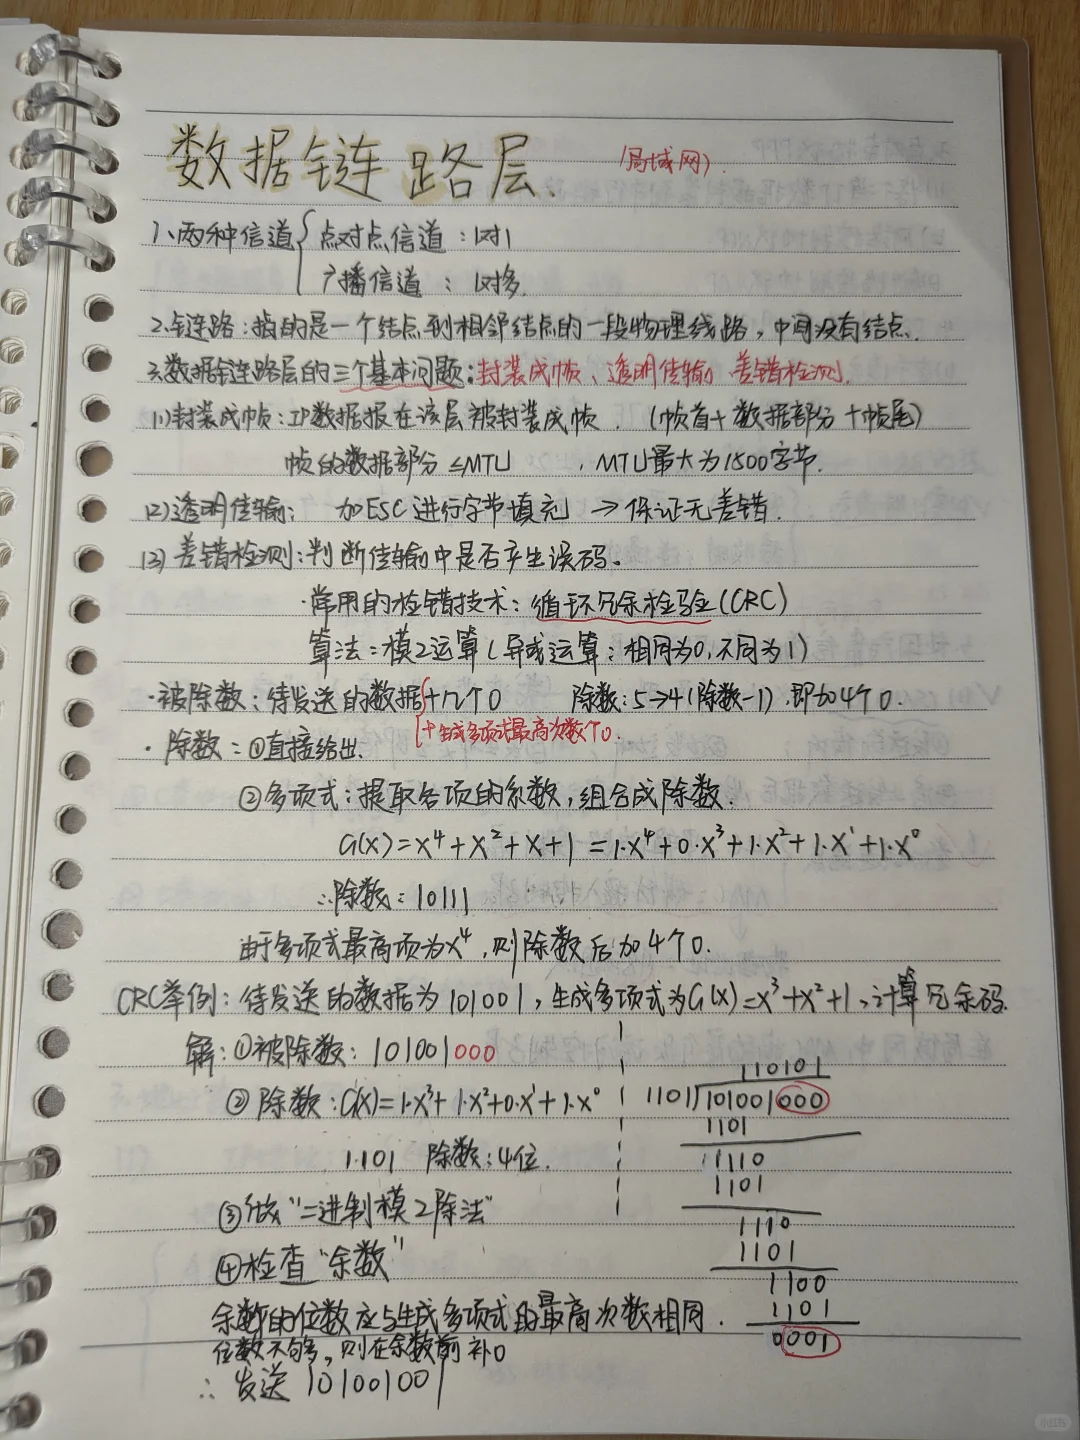 数据链路层.
(局域网).
1、两种信道{点对点信道:1对1
广播信道:1对多.
2、链路:指的是一个结点到相邻结点的一段物理线路,中间没有结点.
3、数据链路层的三个基本问题:封装成帧、透明传输、差错检测.
(1)封装成帧:IP数据报在该层被封装成帧.(帧首+数据部分+帧尾)
帧的数据部分≤MTU ,MTU最大为1500字节.
(2)透明传输:加ESC进行字节填充→保证无差错.
(3)差错检测:判断传输中是否产生误码。
·常用的检错技术:循环冗余检验(CRC)
算法:模2运算(异或运算:相同为0,不同为1)
·被除数:待发送的数据+n个0 除数:5→4(除数-1).即加4个0.
[+生成多项式最高次数个0.
·除数:①直接给出.
②多项式:提取各项的系数,组合成除数.
G(X)=X⁴+X²+X+1=1·X⁴+0·X³+1·X²+1·X¹+1·X⁰
∴除数:10111
由于多项式最高项为X⁴,则除数后加4个0.
CRC举例:待发送的数据为101001,生成多项式为G(X)=X³+X²+1,计算冗余码.
解:①被除数:101001000
②除数:G(X)=1·X³+1·X²+0·X¹+1·X⁰
1101 除数:4位.
③做"二进制模2除法"
④检查"余数"
余数的位数应与生成多项式的最高次数相同.
位数不够,则在余数前补0
∴发送101001001
110101
1101)101001000
1101
1110
1101
1110
1101
1100
1101
0001
小红书